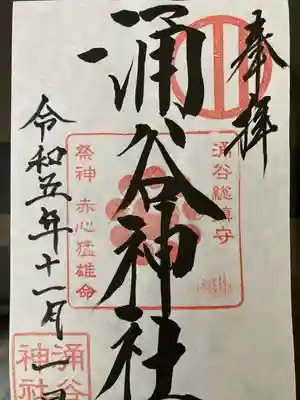 奉拝
涌谷神社
涌谷総鎮守
祭神 赤心猛雄命
令和五年十一月一日
涌谷
神社